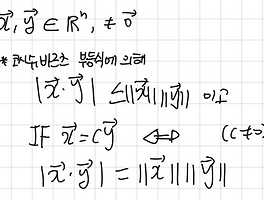 x⃗, y⃗ ∈ ℝⁿ, ≠ 0⃗
* 코시슈바르츠 부등식에 의해
|x⃗ · y⃗| ≤ ||x⃗|| ||y⃗|| 이고
IF x⃗ = cy⃗ ⟺ (c≠0
|x⃗ · y⃗| = ||x⃗|| ||y⃗||